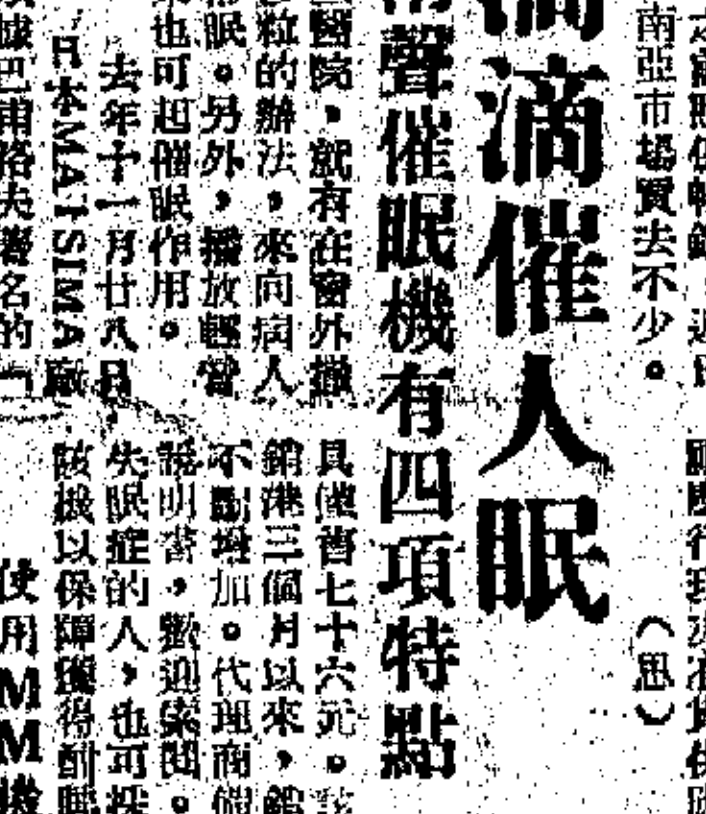 南亞市場賣去不少。
（思）
滴催人眠
聲催眠機有四項特點
醫院，就有在窗外撒
粒的辦法，來向病人
眠。另外，播放輕音
也可起催眠作用。
去年十一月廿八日，
日本MATSIMA廠
據巴甫洛夫著名的
具僅售七十六元。該
銷港三個月以來，銷
不斷增加。代理商備
說明書，歡迎索閱。
失眠症的人，也可採
該機以保障獲得酣睡
使用MM機